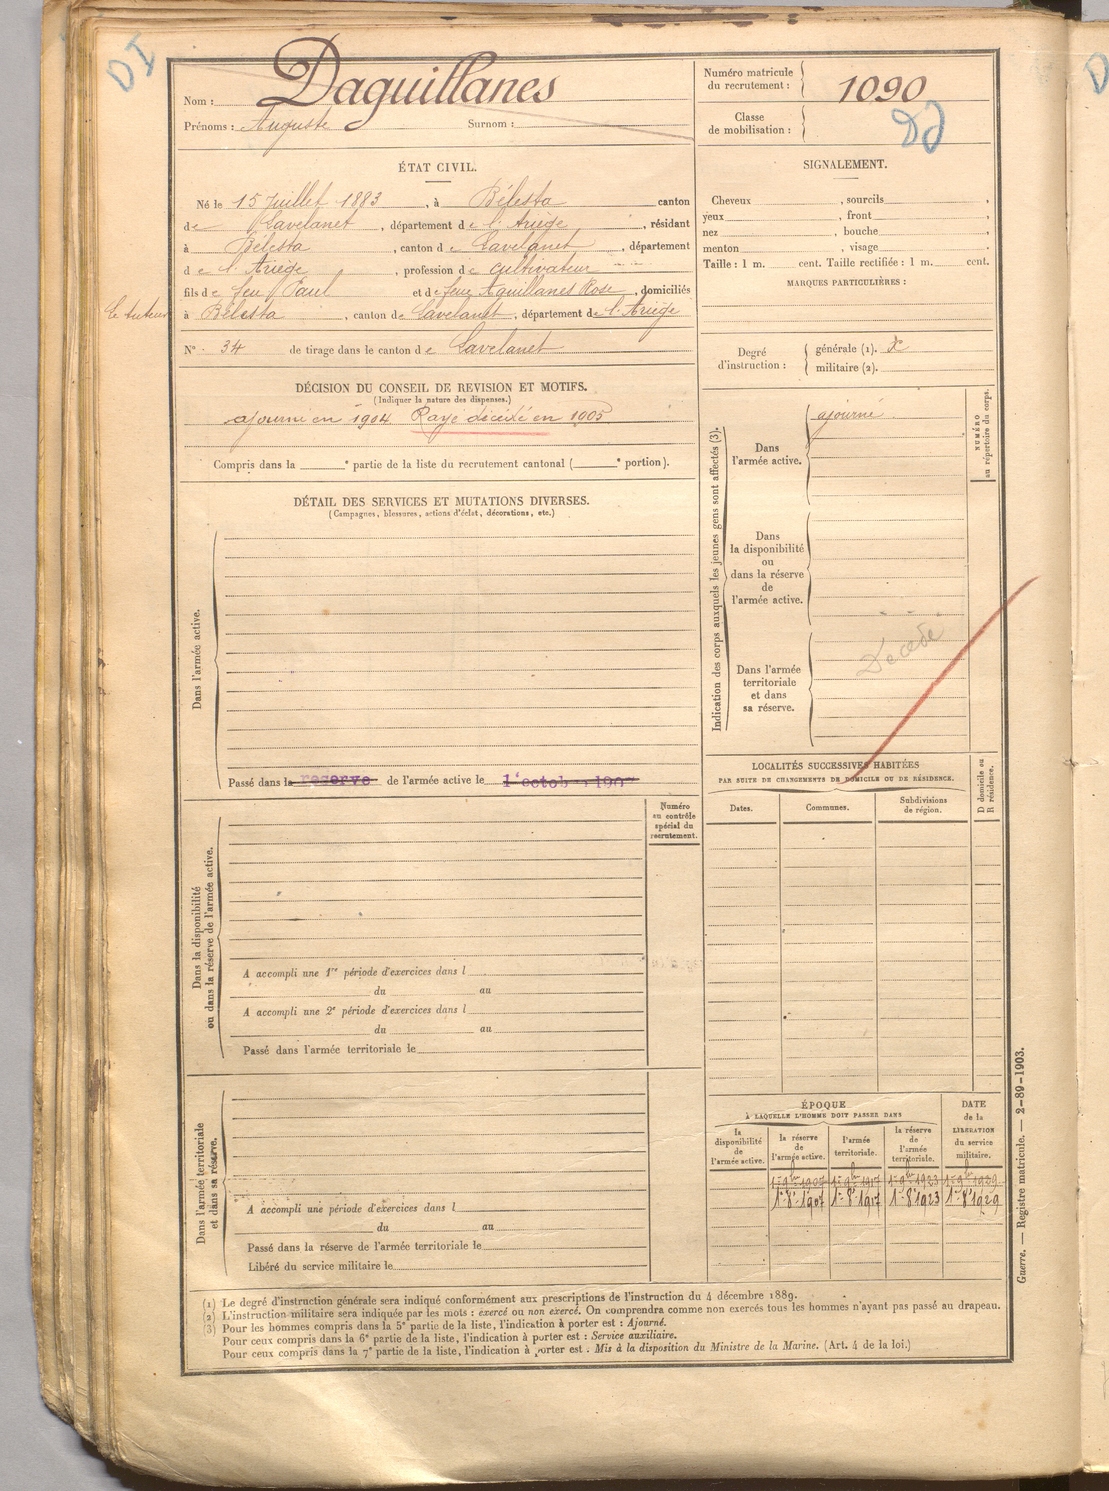 DI
Nom : Daguillanes
Prénoms : Auguste Surnom :
Numéro matricule du recrutement : 1090
Classe de mobilisation :
ÉTAT CIVIL.
Né le 15 Juillet 1883, à Bélesta canton
de Lavelanet, département de l'Ariège, résidant
à Bélesta, canton de Lavelanet, département
de l'Ariège, profession de cultivateur
fils de feu Paul et de feue Aquillanes Rose, domiciliés
Le tuteur
à Bélesta, canton de Lavelanet, département de l'Ariège
N° 34 de tirage dans le canton de Lavelanet
SIGNALEMENT.
Cheveux , sourcils ,
yeux , front ,
nez , bouche ,
menton , visage
Taille : 1 m. cent. Taille rectifiée : 1 m. cent.
MARQUES PARTICULIÈRES :
Degré d'instruction : générale (1). X
militaire (2).
DÉCISION DU CONSEIL DE REVISION ET MOTIFS.
(Indiquer la nature des dispenses.)
ajourné en 1904 Rayé décédé en 1905
Compris dans la e partie de la liste du recrutement cantonal ( e portion).
DÉTAIL DES SERVICES ET MUTATIONS DIVERSES.
(Campagnes, blessures, actions d'éclat, décorations, etc.)
Dans l'armée active.
Passé dans la reserve de l'armée active le
Indication des corps auxquels les jeunes gens sont affectés (3).
Dans
l'armée active.
ajourné
NUMÉRO
au répertoire du corps.
Dans
la disponibilité
ou
dans la réserve
de
l'armée active.
Dans l'armée
territoriale
et dans
sa réserve.
Décédé
LOCALITÉS SUCCESSIVES HABITÉES
PAR SUITE DE CHANGEMENTS DE DOMICILE OU DE RÉSIDENCE.
Dates. Communes. Subdivisions de région.
D domicile ou
R résidence.
Dans la disponibilité
ou dans la réserve de l'armée active.
Numéro
au contrôle
spécial du
recrutement.
A accompli une 1re période d'exercices dans l
du au
A accompli une 2e période d'exercices dans l
du au
Passé dans l'armée territoriale le
Dans l'armée territoriale
et dans sa réserve.
A accompli une période d'exercices dans l
du au
Passé dans la réserve de l'armée territoriale le
Libéré du service militaire le
ÉPOQUE
À LAQUELLE L'HOMME DOIT PASSER DANS
la disponibilité de l'armée active.
la réserve de l'armée active.
l'armée territoriale.
la réserve de l'armée territoriale.
DATE de la LIBÉRATION du service militaire.
1er 9bre 1907 1er 9bre 1917 1er 9bre 1923 1er 9bre 1929
1er 8bre 1907 1er 8bre 1917 1er 8bre 1923 1er 8bre 1929
Guerre. — Registre matricule. — 2-89-1903.
(1) Le degré d'instruction générale sera indiqué conformément aux prescriptions de l'instruction du 4 décembre 1889.
(2) L'instruction militaire sera indiquée par les mots : exercé ou non exercé. On comprendra comme non exercés tous les hommes n'ayant pas passé au drapeau.
(3) Pour les hommes compris dans la 5e partie de la liste, l'indication à porter est : Ajourné.
Pour ceux compris dans la 6e partie de la liste, l'indication à porter est : Service auxiliaire.
Pour ceux compris dans la 7e partie de la liste, l'indication à porter est : Mis à la disposition du Ministre de la Marine. (Art. 4 de la loi.)